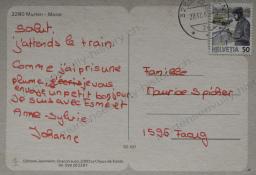 2280 Murten - Morat
Salut,
j'attends le train.
Comme j'ai pris une
plume, j'écris je vous
envoye un petit bonjour
je suis avec Esmé et
Anne-Sylvie
Johanne
HELVETIA 50
Famille
Maurice Spicher
1595 Faoug